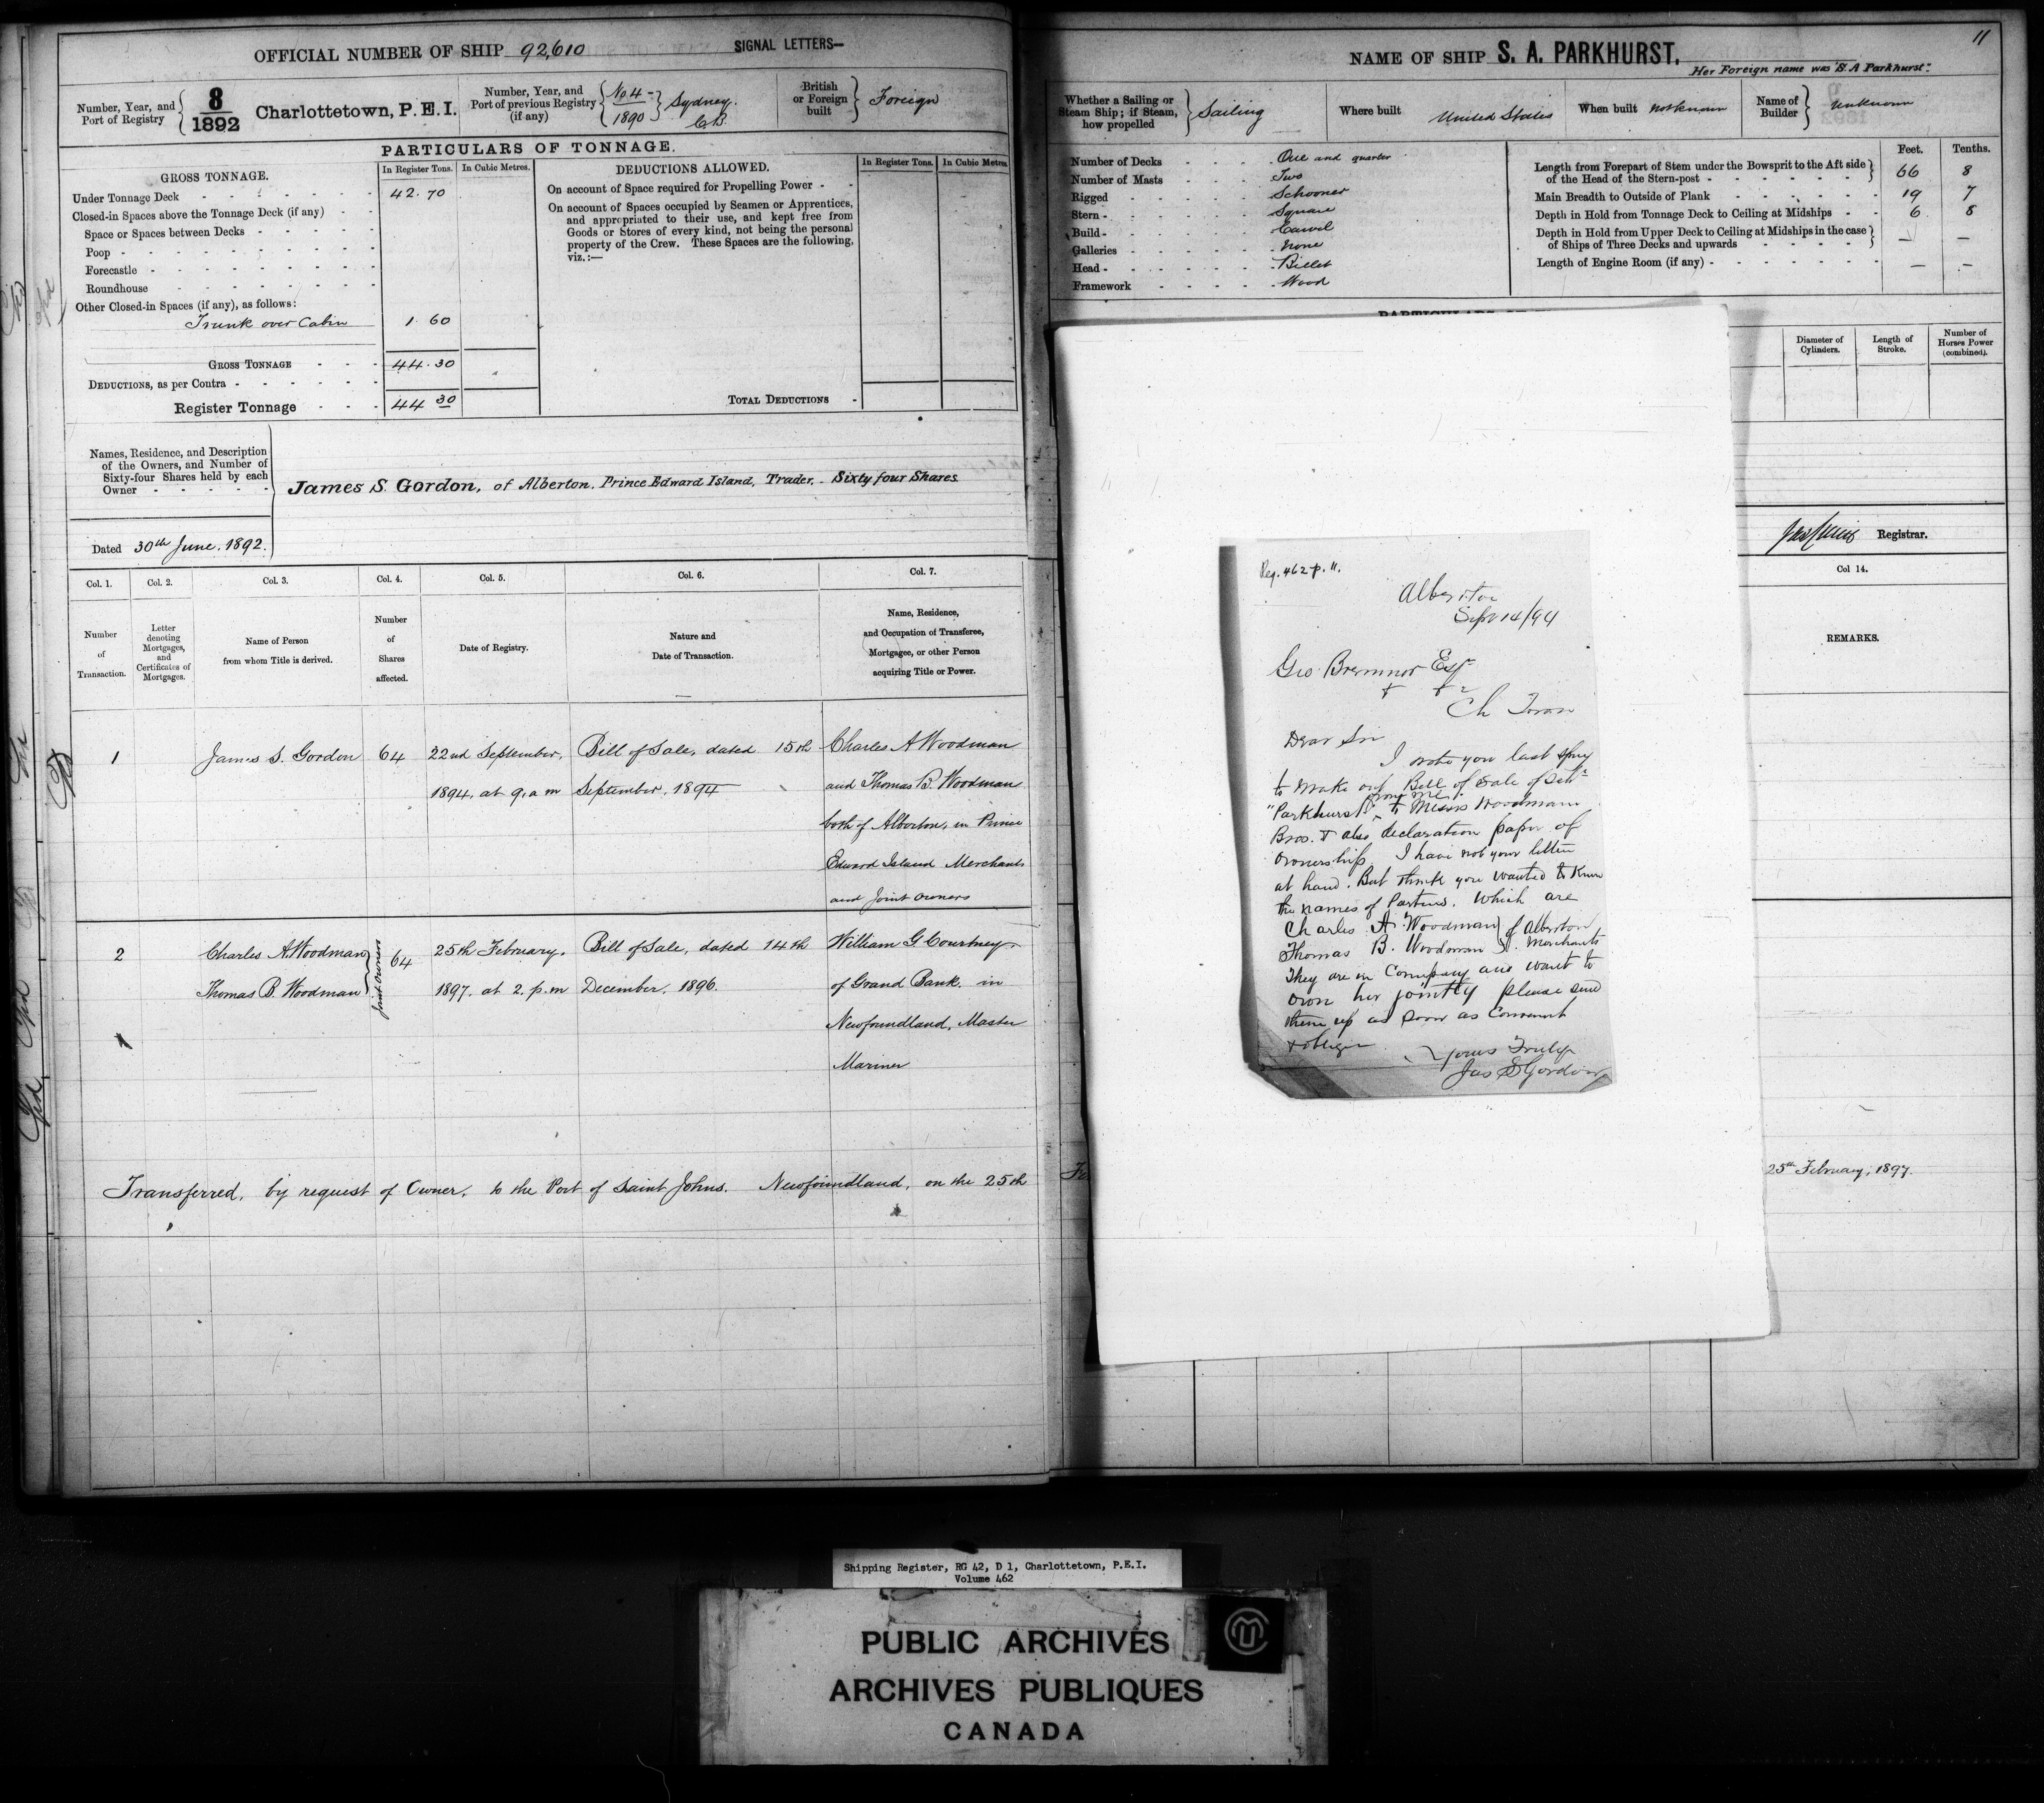 OFFICIAL NUMBER OF SHIP 92,610
SIGNAL LETTERS—
Number, Year, and Port of Registry
8
1892
Charlottetown, P.E.I.
Number, Year, and Port of previous Registry (if any)
No. 4
1890
Sydney. C.B.
British or Foreign built
Foreign
PARTICULARS OF TONNAGE.
GROSS TONNAGE.
In Register Tons.
In Cubic Metres.
Under Tonnage Deck 42.70
Closed-in Spaces above the Tonnage Deck (if any)
Space or Spaces between Decks
Poop
Forecastle
Roundhouse
Other Closed-in Spaces (if any), as follows:
Trunk over Cabin 1.60
GROSS TONNAGE 44.30
DEDUCTIONS, as per Contra
Register Tonnage 44 30
DEDUCTIONS ALLOWED.
In Register Tons.
In Cubic Metres.
On account of Space required for Propelling Power
On account of Spaces occupied by Seamen or Apprentices,
and appropriated to their use, and kept free from
Goods or Stores of every kind, not being the personal
property of the Crew. These Spaces are the following,
viz.:—
TOTAL DEDUCTIONS
Names, Residence, and Description
of the Owners, and Number of
Sixty-four Shares held by each
Owner
James S. Gordon, of Alberton, Prince Edward Island, Trader, Sixty four Shares
Dated 30th June, 1892.
Col. 1.
Number of Transaction.
Col. 2.
Letter denoting Mortgages, and Certificates of Mortgages.
Col. 3.
Name of Person from whom Title is derived.
Col. 4.
Number of Shares affected.
Col. 5.
Date of Registry.
Col. 6.
Nature and Date of Transaction.
Col. 7.
Name, Residence, and Occupation of Transferee, Mortgagee, or other Person acquiring Title or Power.
1
James S. Gordon
64
22nd September,
1894, at 9, a m
Bill of Sale, dated 15th
September, 1894
Charles A Woodman
and Thomas B. Woodman
both of Alberton, in Prince
Edward Island Merchants
and Joint owners
2
Charles A. Woodman
Thomas B. Woodman
Joint owners
64
25th February,
1897, at 2. p.m
Bill of Sale, dated 14th
December, 1896.
William G Courtney
of Grand Bank, in
Newfoundland, Master
Mariner
Transferred, by request of Owner, to the Port of Saint Johns. Newfoundland, on the 25th
11
NAME OF SHIP S. A. PARKHURST.
Her Foreign name was "S. A Parkhurst"
Whether a Sailing or Steam Ship; if Steam, how propelled
Sailing
Where built United States
When built not known
Name of Builder
unknown
Number of Decks One and quarter
Number of Masts Two
Rigged Schooner
Stern Square
Build Carvel
Galleries None
Head Billet
Framework Wood
Feet.
Tenths.
Length from Forepart of Stem under the Bowsprit to the Aft side of the Head of the Stern-post 66 8
Main Breadth to Outside of Plank 19 7
Depth in Hold from Tonnage Deck to Ceiling at Midships 6 8
Depth in Hold from Upper Deck to Ceiling at Midships in the case of Ships of Three Decks and upwards — —
Length of Engine Room (if any) — —
Diameter of Cylinders.
Length of Stroke.
Number of Horses Power (combined).
Registrar.
Col 14.
REMARKS.
25th February, 1897.
Reg. 462 p. 11.
Alberton
Sept 14/94
Geo Bremner Esqr
Ch Town
Dear Sir
I wrote you last spring
to make out Bill of Sale of Schr
"Parkhurst" from me to Messrs Woodman
Bros. & also declaration paper of
ownership. I have not your letter
at hand. But think you wanted to know
the names of Partners. Which are
Charles A. Woodman
Thomas B. Woodman
of Alberton
Merchants
They are in Company and want to
own her jointly please send
them up as soon as Convenient
& oblige
Yours Truly
Jas S Gordon
Shipping Register, RG 42, D 1, Charlottetown, P.E.I.
Volume 462
PUBLIC ARCHIVES
ARCHIVES PUBLIQUES
CANADA